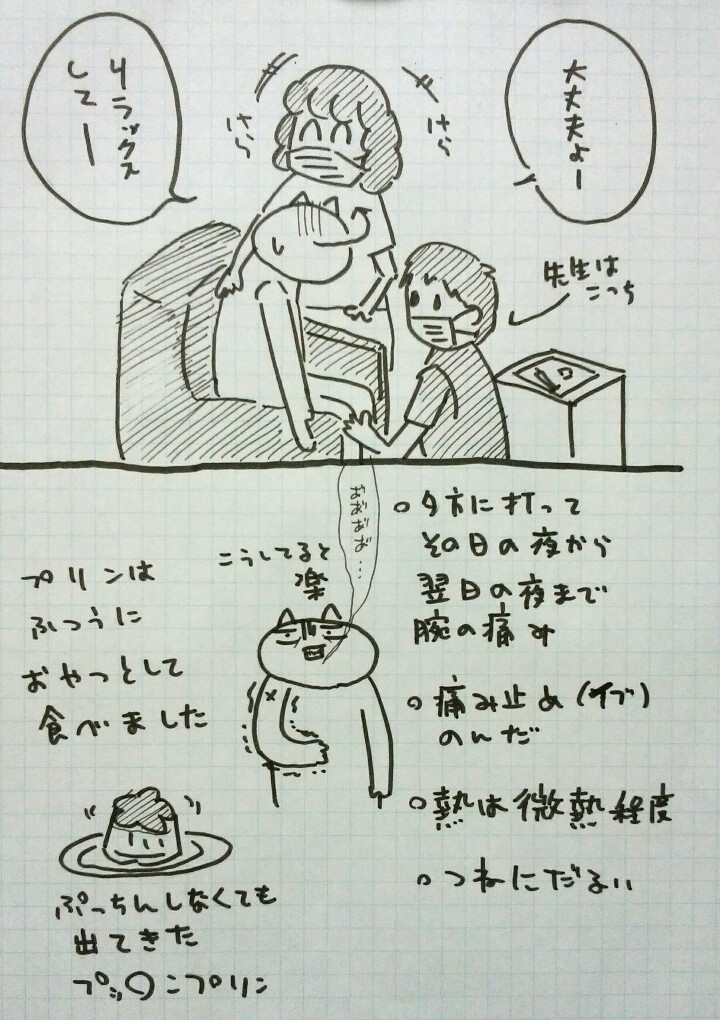 大丈夫よー
リラックス
してー
けら
けら
先生は
こっち
おおおお…
こうしてると
楽
プリンは
ふつうに
おやつとして
食べました
ぷっちんしなくても
出てきた
プッ〇ンプリン
○夕方に打って
その日の夜から
翌日の夜まで
腕の痛み
○痛み止め(イブ)
のんだ
○熱は微熱程度
○つねにだるい